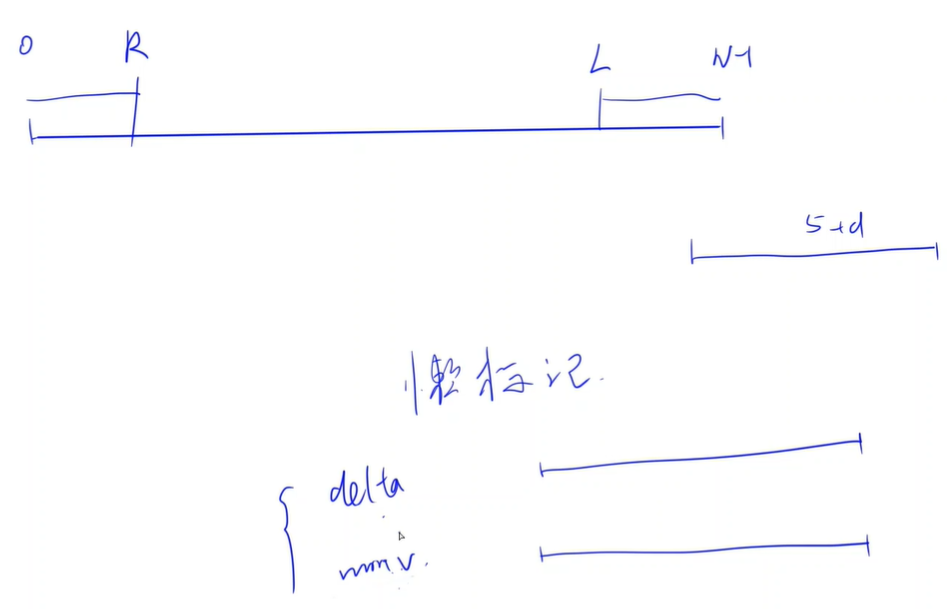 0 R L N-1
5+d
懒标记.
delta
minv.